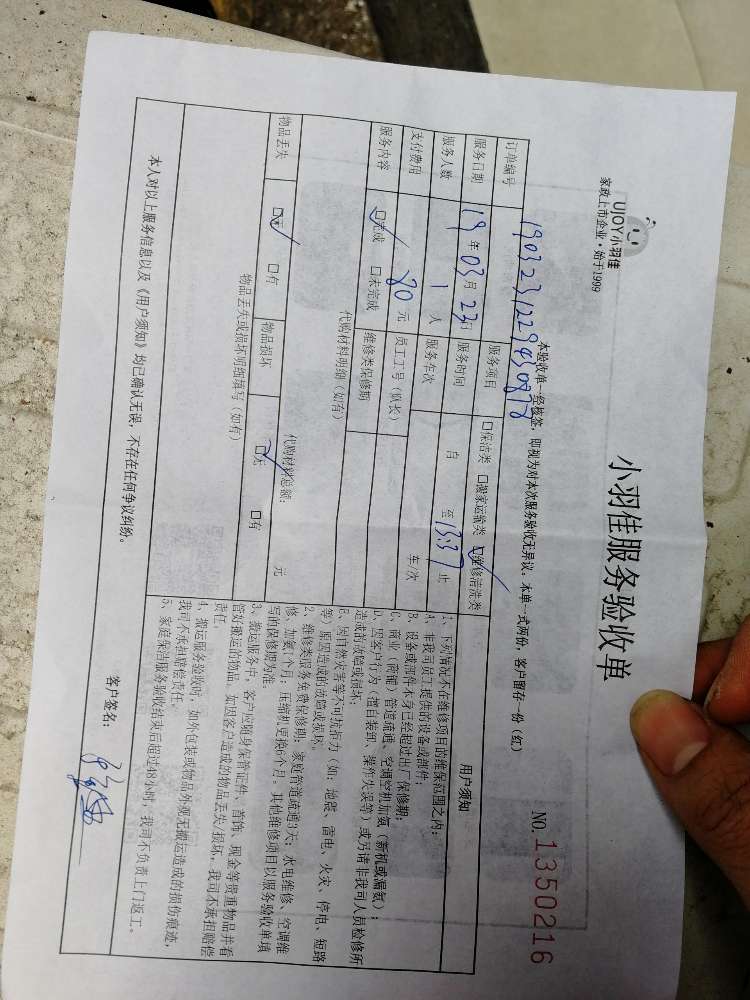 UJOY小羽佳
家政上市企业·始于1999
小羽佳服务验收单
NO.1350216
本验收单一经核签，即视为对本次服务验收无异议。本单一式两份，客户留存一份（红）
订单编号
服务项目 口保洁类 口搬家运输类 口维修清洗类
服务日期 19年03月23日 服务时间 自 至13:37止
服务人数 1人 服务车次 车/次
支付费用 80元 员工工号（队长）
服务内容 口完成 口未完成 维修类保修期
代购材料明细（如有）
代购材料总额： 元
物品丢失 口无 口有 物品损坏 口无 口有
物品丢失或损坏明细填写（如有）
用户须知
1、下列情况不在维修项目的维保范围之内：
A、非我司员工提供的设备或部件；
B、设备或部件本身已经超过出厂保修期；
C、商业（商铺）管道疏通、空调空机加氨（新机或漏氨）；
D、因客户行为（擅自拆卸、操作失误等）或另请非我司人员检修所
造成的故障或损坏；
E、因自然灾害等不可抗拒力（如：地震、雷电、火灾、停电、短路
等）原因造成的故障或损坏。
2、维修类服务免费保修期：家庭管道疏通3天；水电维修、空调维
修、加氨1个月；压缩机更换6个月。其他维修项目以服务验收单填
写的保修期为准。
3、搬运服务中，客户应随身保管证件、首饰、现金等贵重物品并看
管好搬运的物品，如因客户造成的物品丢失/损坏，我司不承担赔偿
责任。
4、搬运服务验收时，如外包装或物品外观无搬运造成的损伤痕迹，
我司不承担赔偿责任。
5、家庭保洁服务验收结束后超过48小时，我司不负责上门返工。
本人对以上服务信息以及《用户须知》均已确认无误，不存在任何争议纠纷。
客户签名：